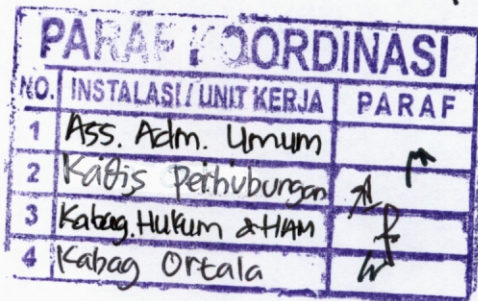 PARAF KOORDINASI
NO. INSTALASI / UNIT KERJA PARAF
1 Ass. Adm. Umum
2 Kadis Perhubungan
3 Kabag. Hukum & HAM
4 Kabag Ortala